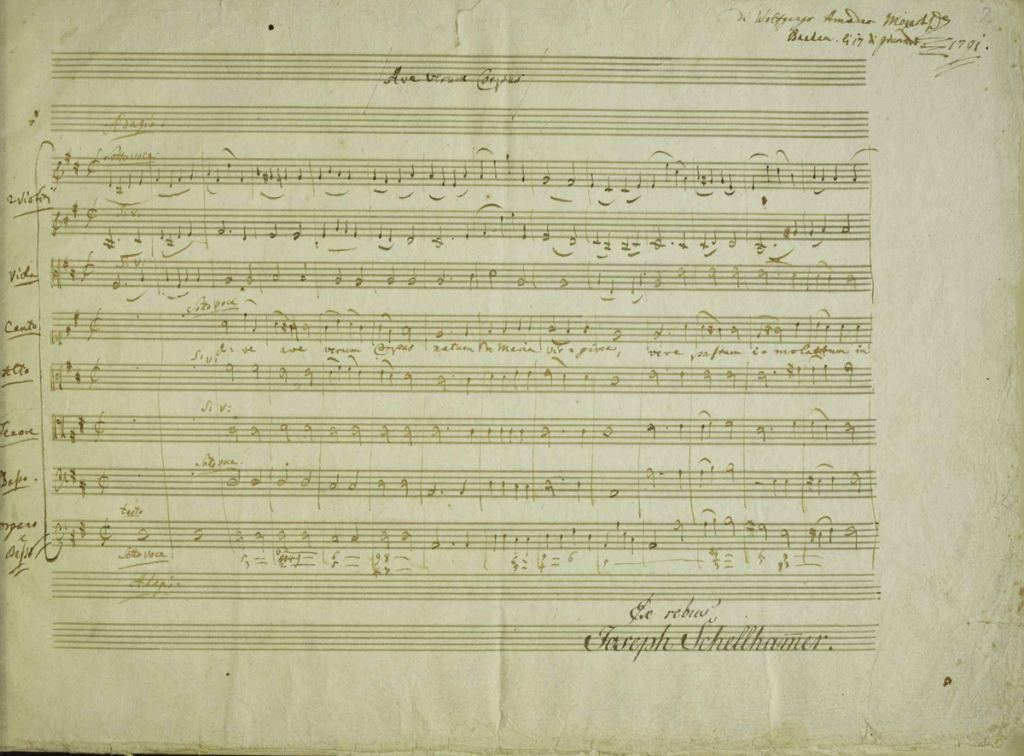 di Wolfgango Amadeo Mozart
2
Baaden. li 17 di giunio 1791.
Ave verum Corpus
Adagio.
Sotto voce
2 Violini
S: v:
Viola
S: v:
Canto
Sotto voce
A- ve ave verum Corpus natum de Maria virgine, vere passum immolatum in
Alto
S: v:
Tenore
S: v:
Basso.
Sotto voce.
Organo
e
Basso
tasto
Sotto voce:
Adagio.
Ex rebus
Joseph Schellham̄er.